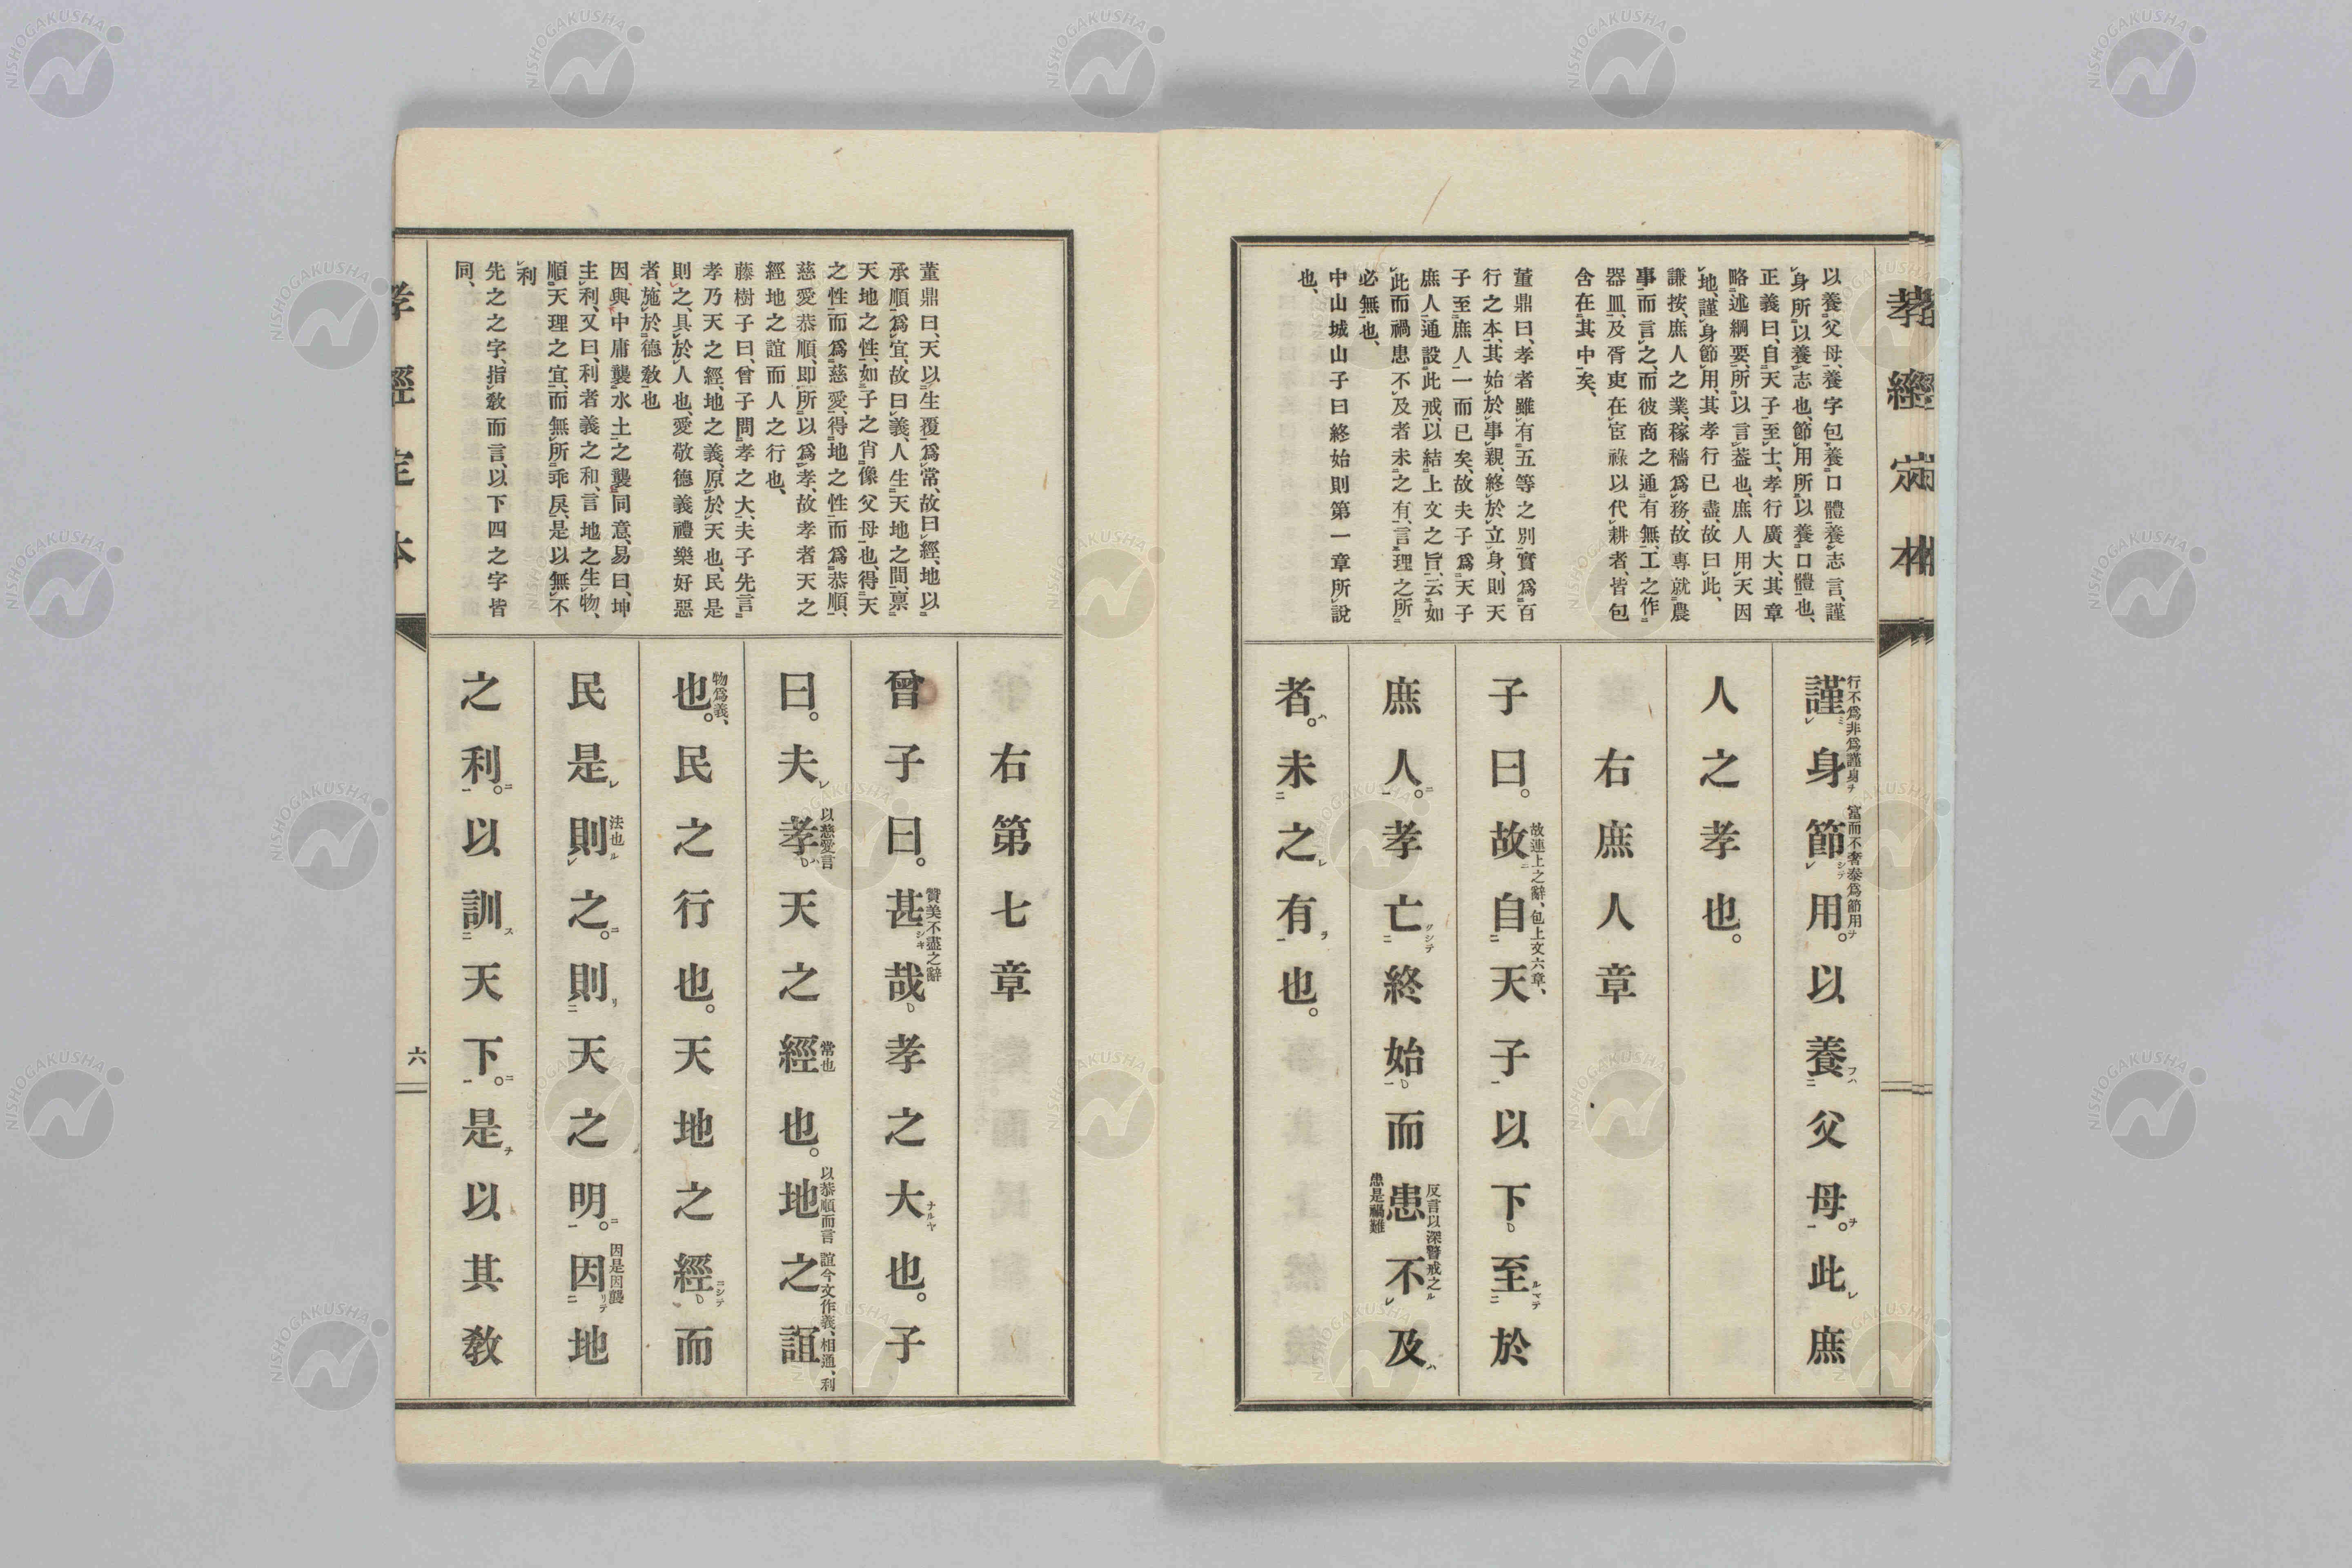 孝經定本
以養父母、養字包養口體養志言、謹
身所以養志也、節用所以養口體也、
正義曰、自天子至士、孝行廣大、其章
略述綱要、所以言葢也、庶人用天因
地、謹身節用、其孝行已盡、故曰此、
謙按、庶人之業、稼穡爲務、故專就農
事而言之、而彼商之通有無、工之作
器皿、及胥吏在宦祿以代耕者、皆包
含在其中矣、
董鼎曰、孝者雖有五等之別、實爲百
行之本、其始於事親、終於立身、則天
子至庶人一而已矣、故夫子爲天子
庶人通設此戒、以結上文之旨、云如
此而禍患不及者未之有、言理之所
必無也、
中山城山子曰終始則第一章所說
也、
行不爲非爲謹身
富而不奢泰爲節用
謹身節用。以養父母。此庶
人之孝也。
右庶人章
故連上之辭、包上文六章、
子曰。故自天子以下至於
反言以深警戒之
患是禍難
庶人。孝亡終始而患不及
者。未之有也。
董鼎曰、天以生覆爲常、故曰經、地以
承順爲宜、故曰義、人生天地之間、稟
天地之性、如子之肖像父母也、得天
之性而爲慈愛、得地之性而爲恭順、
慈愛恭順、卽所以爲孝、故孝者天之
經地之誼而人之行也、
藤樹子曰、曾子問孝之大、夫子先言
孝乃天之經、地之義、原於天也、民是
則之、具於人也、愛敬德義禮樂好惡
者、施於德敎也
因與中庸襲水土之襲同意、易曰、坤
主利、又曰、利者義之和、言地之生物、
順天理之宜、而無所乖戾、是以無不
利
先之之字、指敎而言、以下四之字皆
同、
右第七章
贊美不盡之辭
曾子曰。甚哉孝之大也。子
以慈愛言
常也
以恭順而言
誼今文作義、相通、利
曰。夫孝天之經也。地之誼
物爲義、
也。民之行也。天地之經而
法也
因是因襲
民是則之。則天之明。因地
之利。以訓天下。是以其敎
孝經定本
六
NISHOGAKUSHA